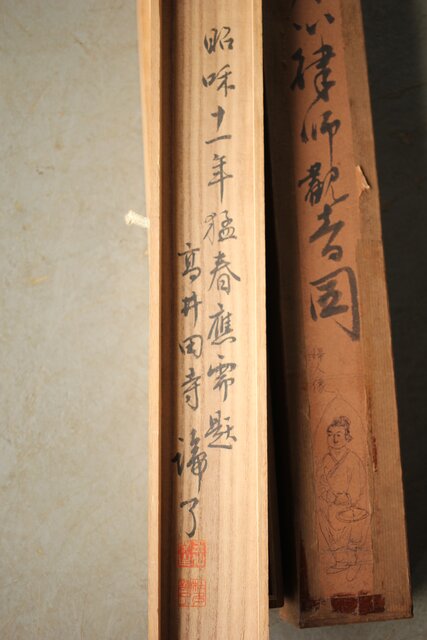 律師觀音図
昭咊十一年猛春應需題
高井田寺 諦了